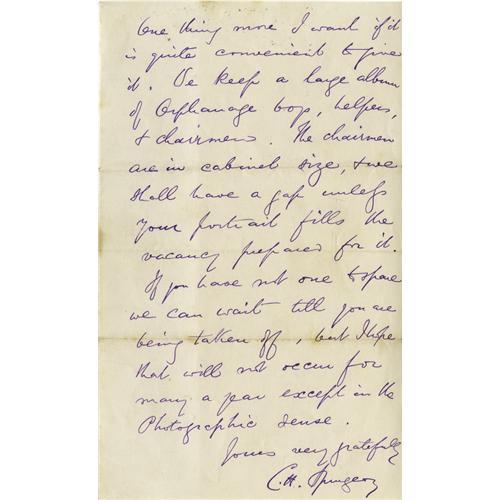 One thing more I want if it
is quite convenient to give
it. We keep a large album
of Orphanage boys, helpers,
& chairmen. The chairmen
are in cabinet size, & we
shall have a gap unless
your portrait fills the
vacancy prepared for it.
If you have not one to spare
we can wait till you are
being taken off, but I hope
that will not occur for
many a year except in the
Photographic sense.
Yours very gratefully
C. H. Spurgeon